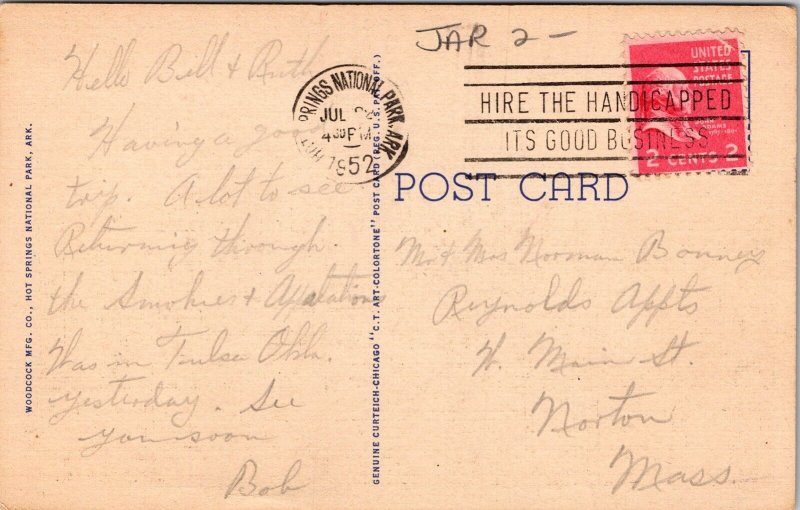 JAR 2-
SPRINGS NATIONAL PARK, ARK
JUL
4 30 PM
1952
HIRE THE HANDICAPPED
ITS GOOD BUSINESS
UNITED
STATES
POSTAGE
2 CENTS 2
POST CARD
Hello Bill & Ruth
Having a good
trip. A lot to see
Returning through
the Smokies & Appalations
Was in Tulsa Okla.
yesterday. See
you soon
Bob
Mr & Mrs Norman Bonney
Reynolds Appts
W. Main St.
Norton
Mass.
WOODCOCK MFG. CO., HOT SPRINGS NATIONAL PARK, ARK.
GENUINE CURTEICH-CHICAGO "C.T. ART-COLORTONE" POST CARD (REG. U.S. PAT. OFF.)